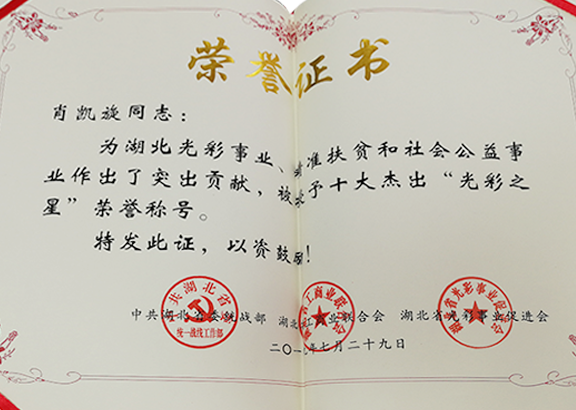 荣誉证书
肖凯旋同志：
为湖北光彩事业、准扶贫和社会公益事
业作出了突出贡献，被予十大杰出“光彩之
星”荣誉称号。
特发此证，以资鼓励！
中共湖北省委统战部 湖北业联合会 湖北省光彩事业促进会
共湖北省
统一战线工作部
工商业联合会
省光彩事业促进会
二〇一七月二十九日